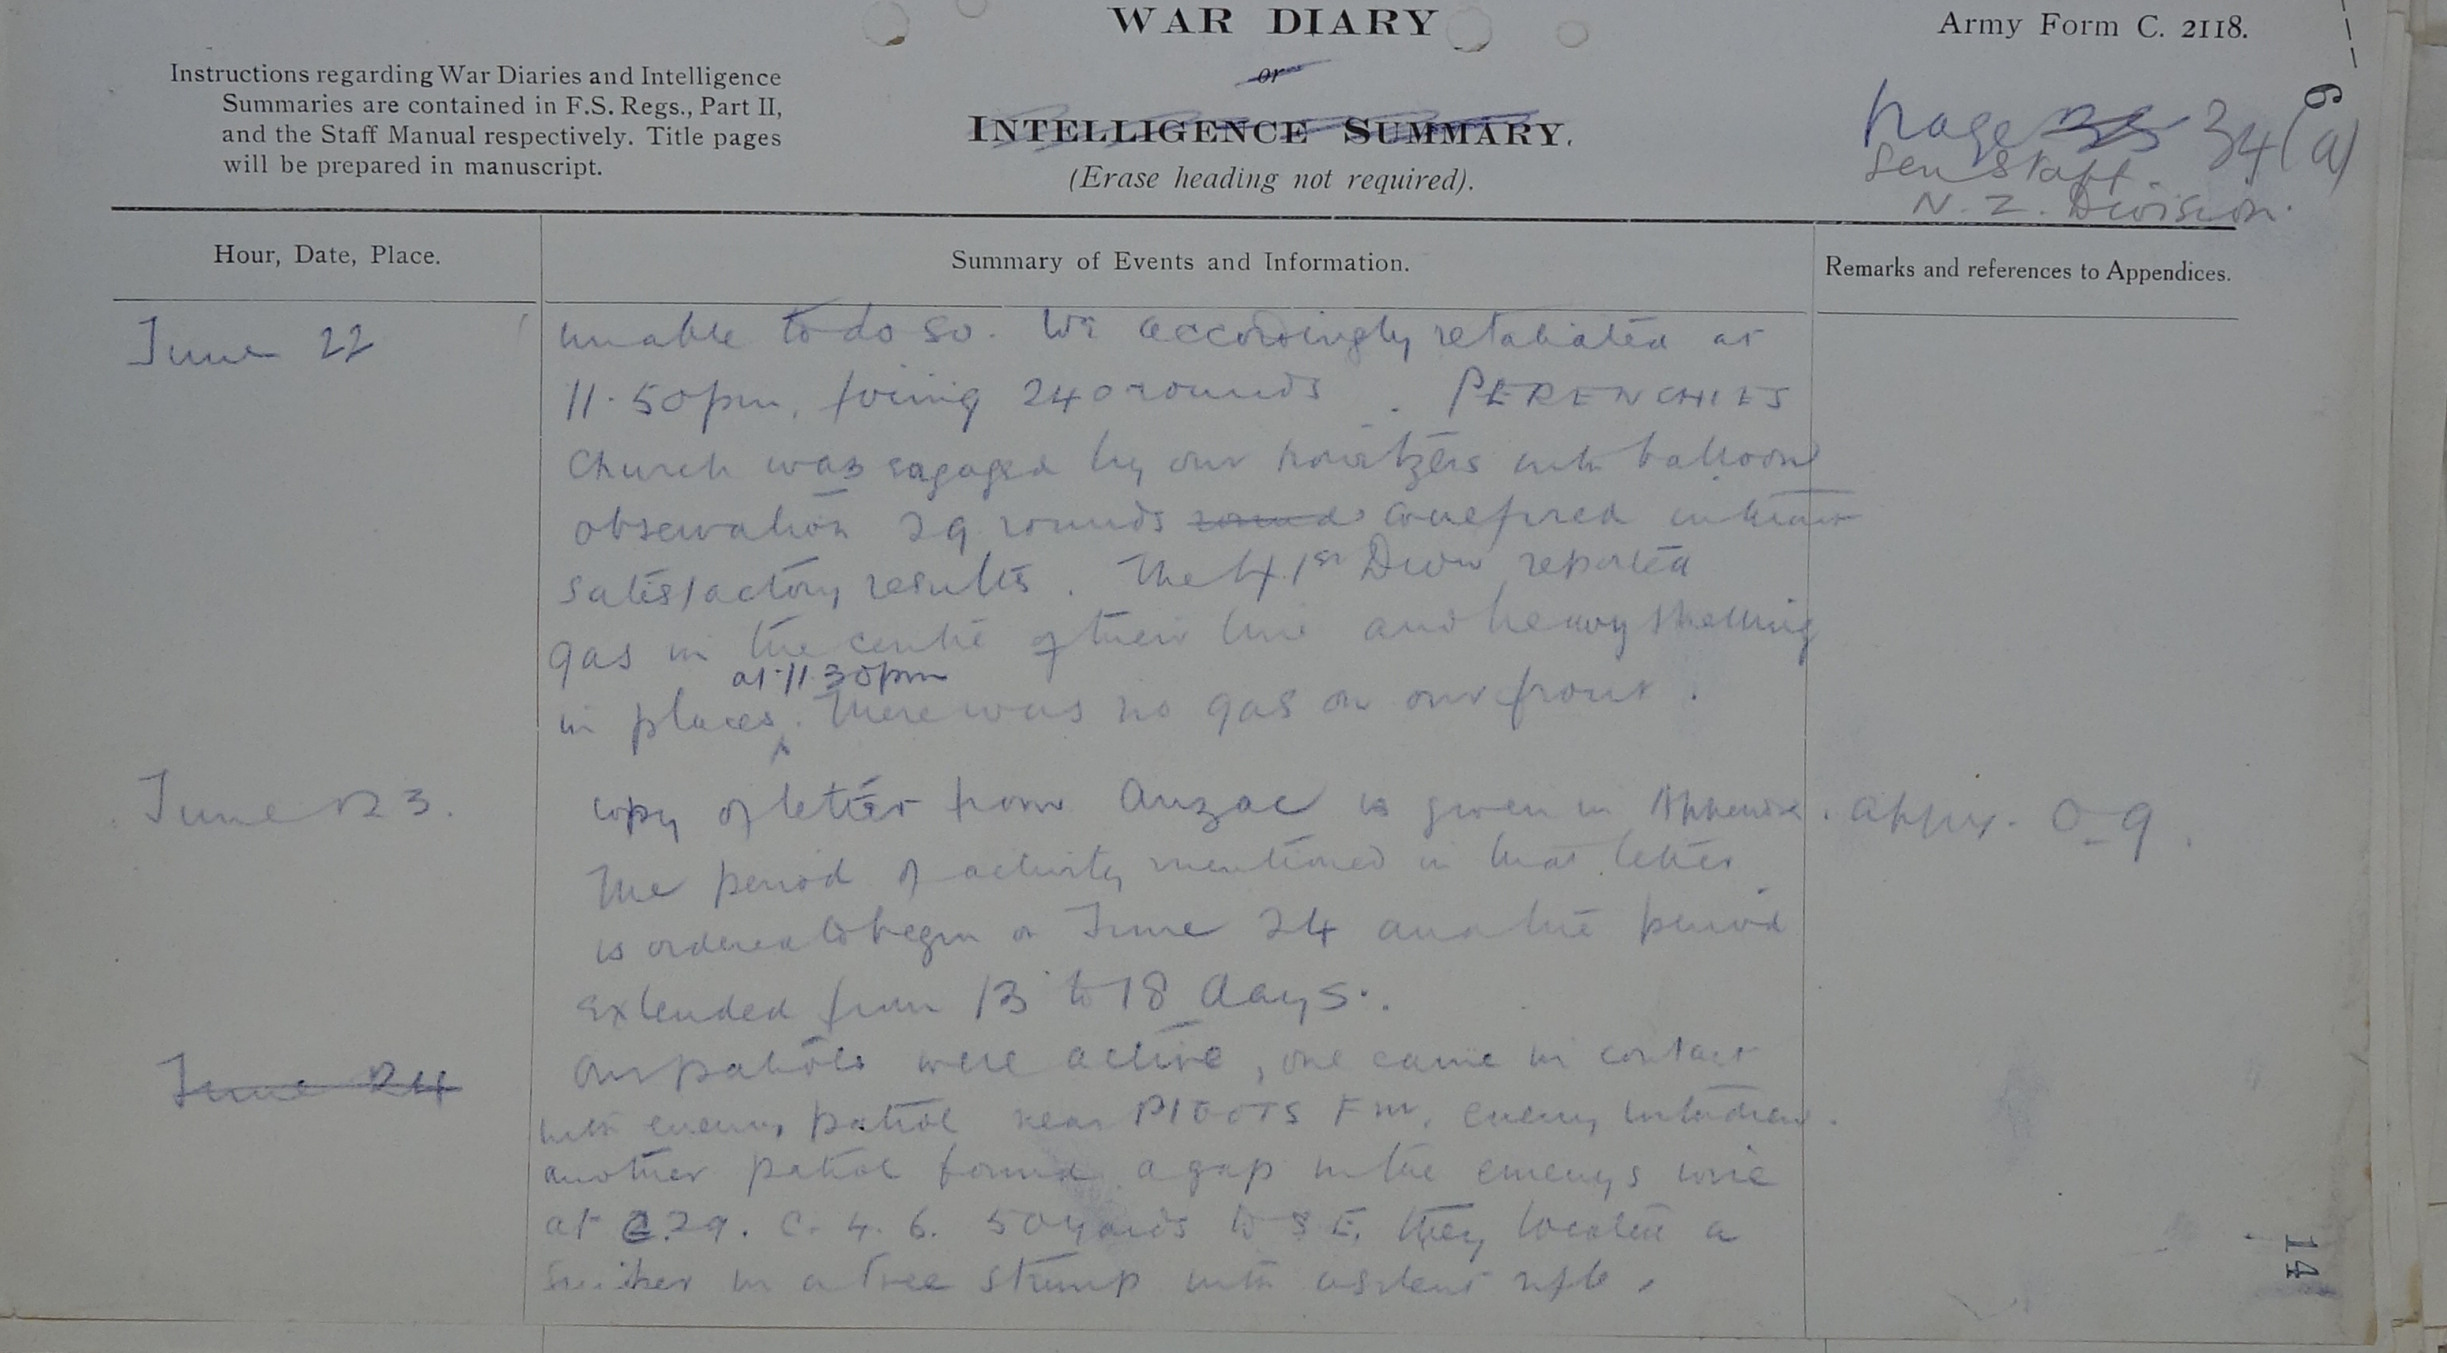 WAR DIARY
or
INTELLIGENCE SUMMARY.
(Erase heading not required).
Army Form C. 2118.
Instructions regarding War Diaries and Intelligence
Summaries are contained in F.S. Regs., Part II,
and the Staff Manual respectively. Title pages
will be prepared in manuscript.
page 35 34(a)
Gen Staff.
N. Z. Division.
6
Hour, Date, Place.
Summary of Events and Information.
Remarks and references to Appendices.
June 22
unable to do so. We accordingly retaliated at
11.50pm, firing 240 rounds. PERENCHIES
Church was engaged by our howitzers with balloon
observation 29 rounds rounds fired with
satisfactory results. The 41st Divn reported
gas in the centre of their line and heavy shelling
at 11.30pm
in places. There was no gas on our front.
June 23.
Copy of letter from Anzac is given in Appendix. appx. O_9.
The period of activity mentioned in that letter
is ordered to begin on June 24 and the period
extended from 13 to 18 days.
June 24
Our patrols were active, one came in contact
with enemy patrol near Fm, enemy withdrew.
another patrol found a gap in the enemys wire
at C.29.c.4.6. 50 yards to SE. they located a
sniper in a tree stump with a silent rifle.
14